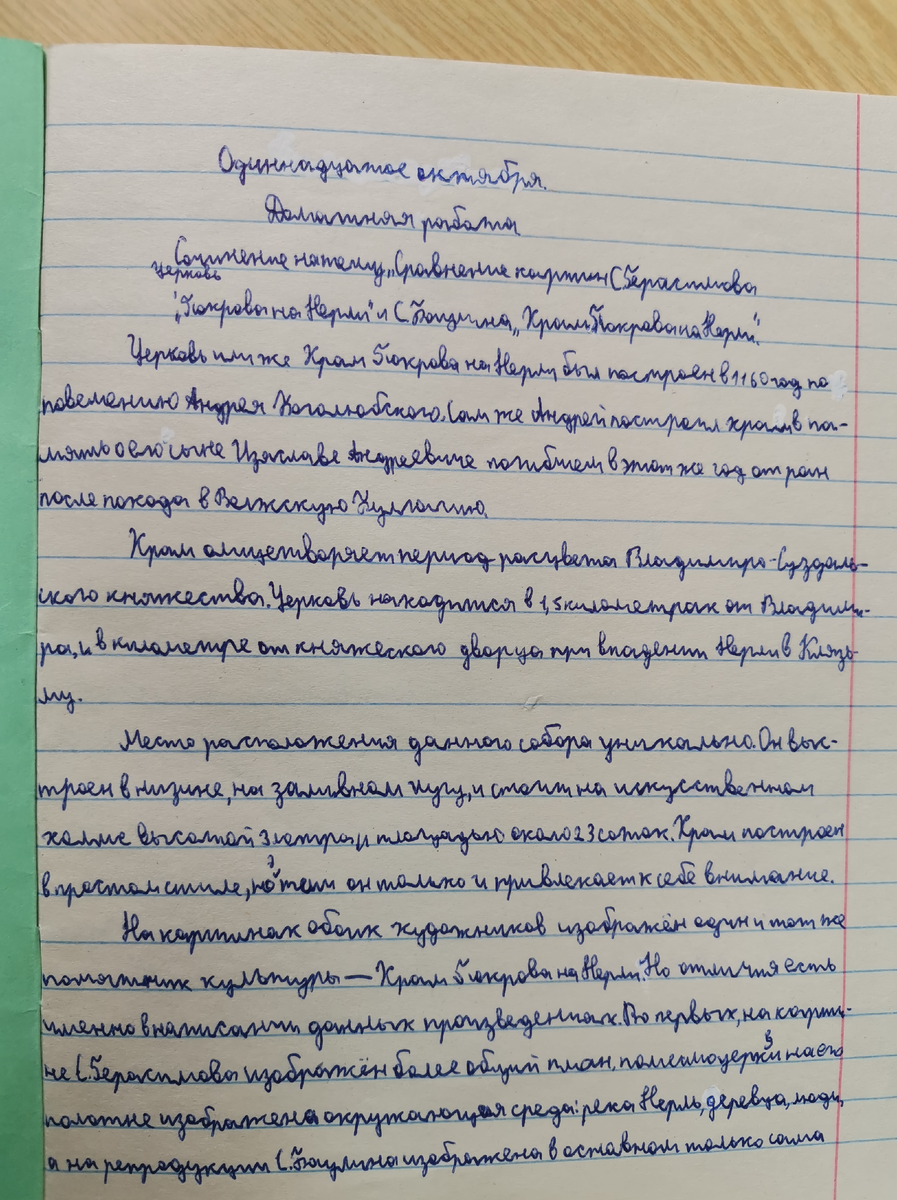 Одиннадцатое октября.
Домашняя работа
Сочинение на тему „Сравнение картин С.Герасимова
церковь
„Покрова на Нерли" и С.Баулина „Храм Покрова на Нерли".
Церковь или же Храм Покрова на Нерли был построен в 1160 год по
повелению Андрея Боголюбского. Сам же Андрей построил храм в па-
мять о его сыне Изяславе Андреевиче погибшем в этот же год от ран
после похода в Волжскую Булгарию
Храм олицетворяет период расцвета Владимиро-Суздаль-
ского княжества. Церковь находится в 1,5 километрах от Владими-
ра, и в километре от княжеского дворца при впадении Нерли в Клязь-
му.
Место расположения данного собора уникально. Он выс-
троен в низине, на заливном лугу, и стоит на искусственном
холме высотой 3 метра, и площадью около 23 соток. Храм построен
в простом стиле, но этим он только и привлекает к себе внимание.
На картинах обоих художников изображён один и тот же
памятник культуры — Храм Покрова на Нерли. Но отличия есть
именно в написании данных произведениях. Во первых, на карти-
не С.Герасимова изображён более общий план, помимо церкви на его
полотне изображена окружающая среда: река Нерль, деревца, люди,
а на репродукции С.Баулина изображена в основном только сама